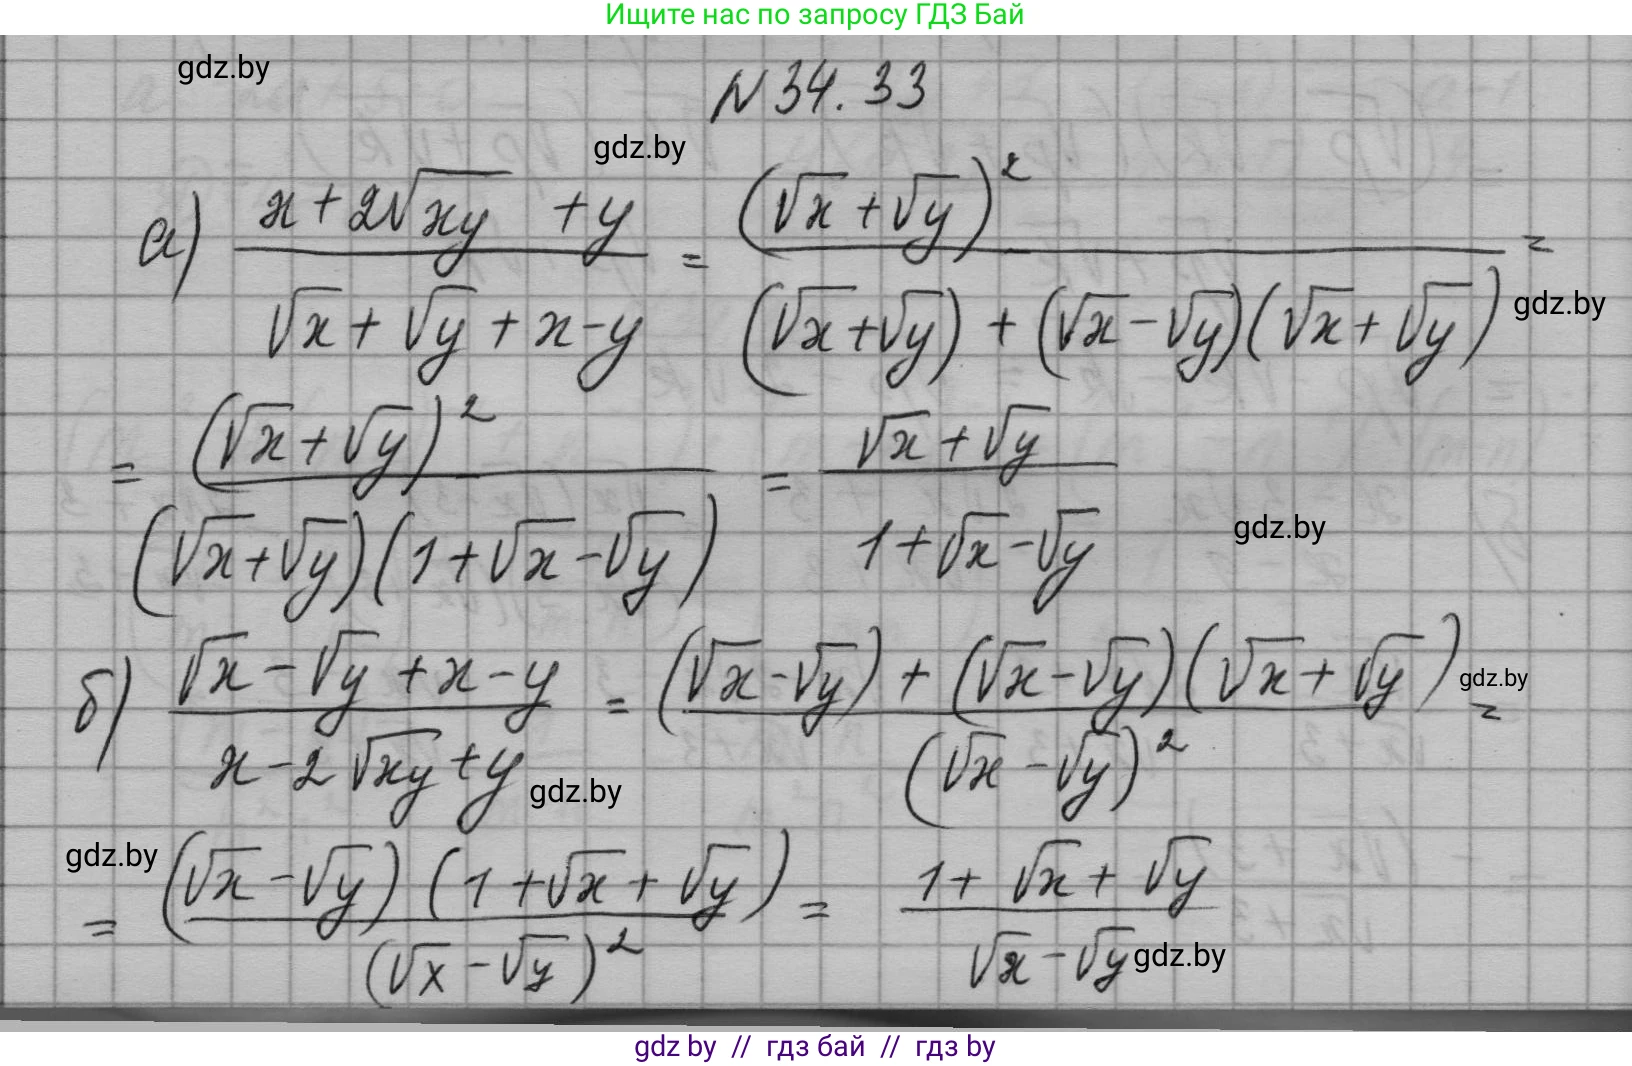 Ищите нас по запросу ГДЗ Бай
gdz.by
N 34.33
gdz.by
а) (x + 2√(xy) + y)/(√x + √y + x - y) = (√x + √y)²/((√x + √y) + (√x - √y)(√x + √y)) =
gdz.by
= (√x + √y)²/((√x + √y)(1 + √x - √y)) = (√x + √y)/(1 + √x - √y)
gdz.by
б) (√x - √y + x - y)/(x - 2√(xy) + y) = ((√x - √y) + (√x - √y)(√x + √y))/(√x - √y)² =
gdz.by
gdz.by
gdz.by
= (√x - √y)(1 + √x + √y)/(√x - √y)² = (1 + √x + √y)/(√x - √y)
gdz.by
gdz by // гдз бай // гдз by